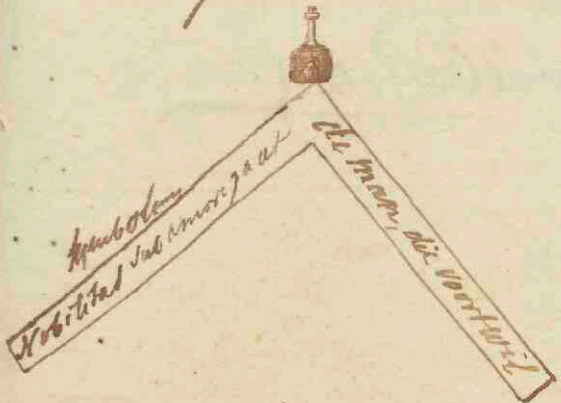 Symbolum
Nobilitas sub amore jacet
de man, die voortwil